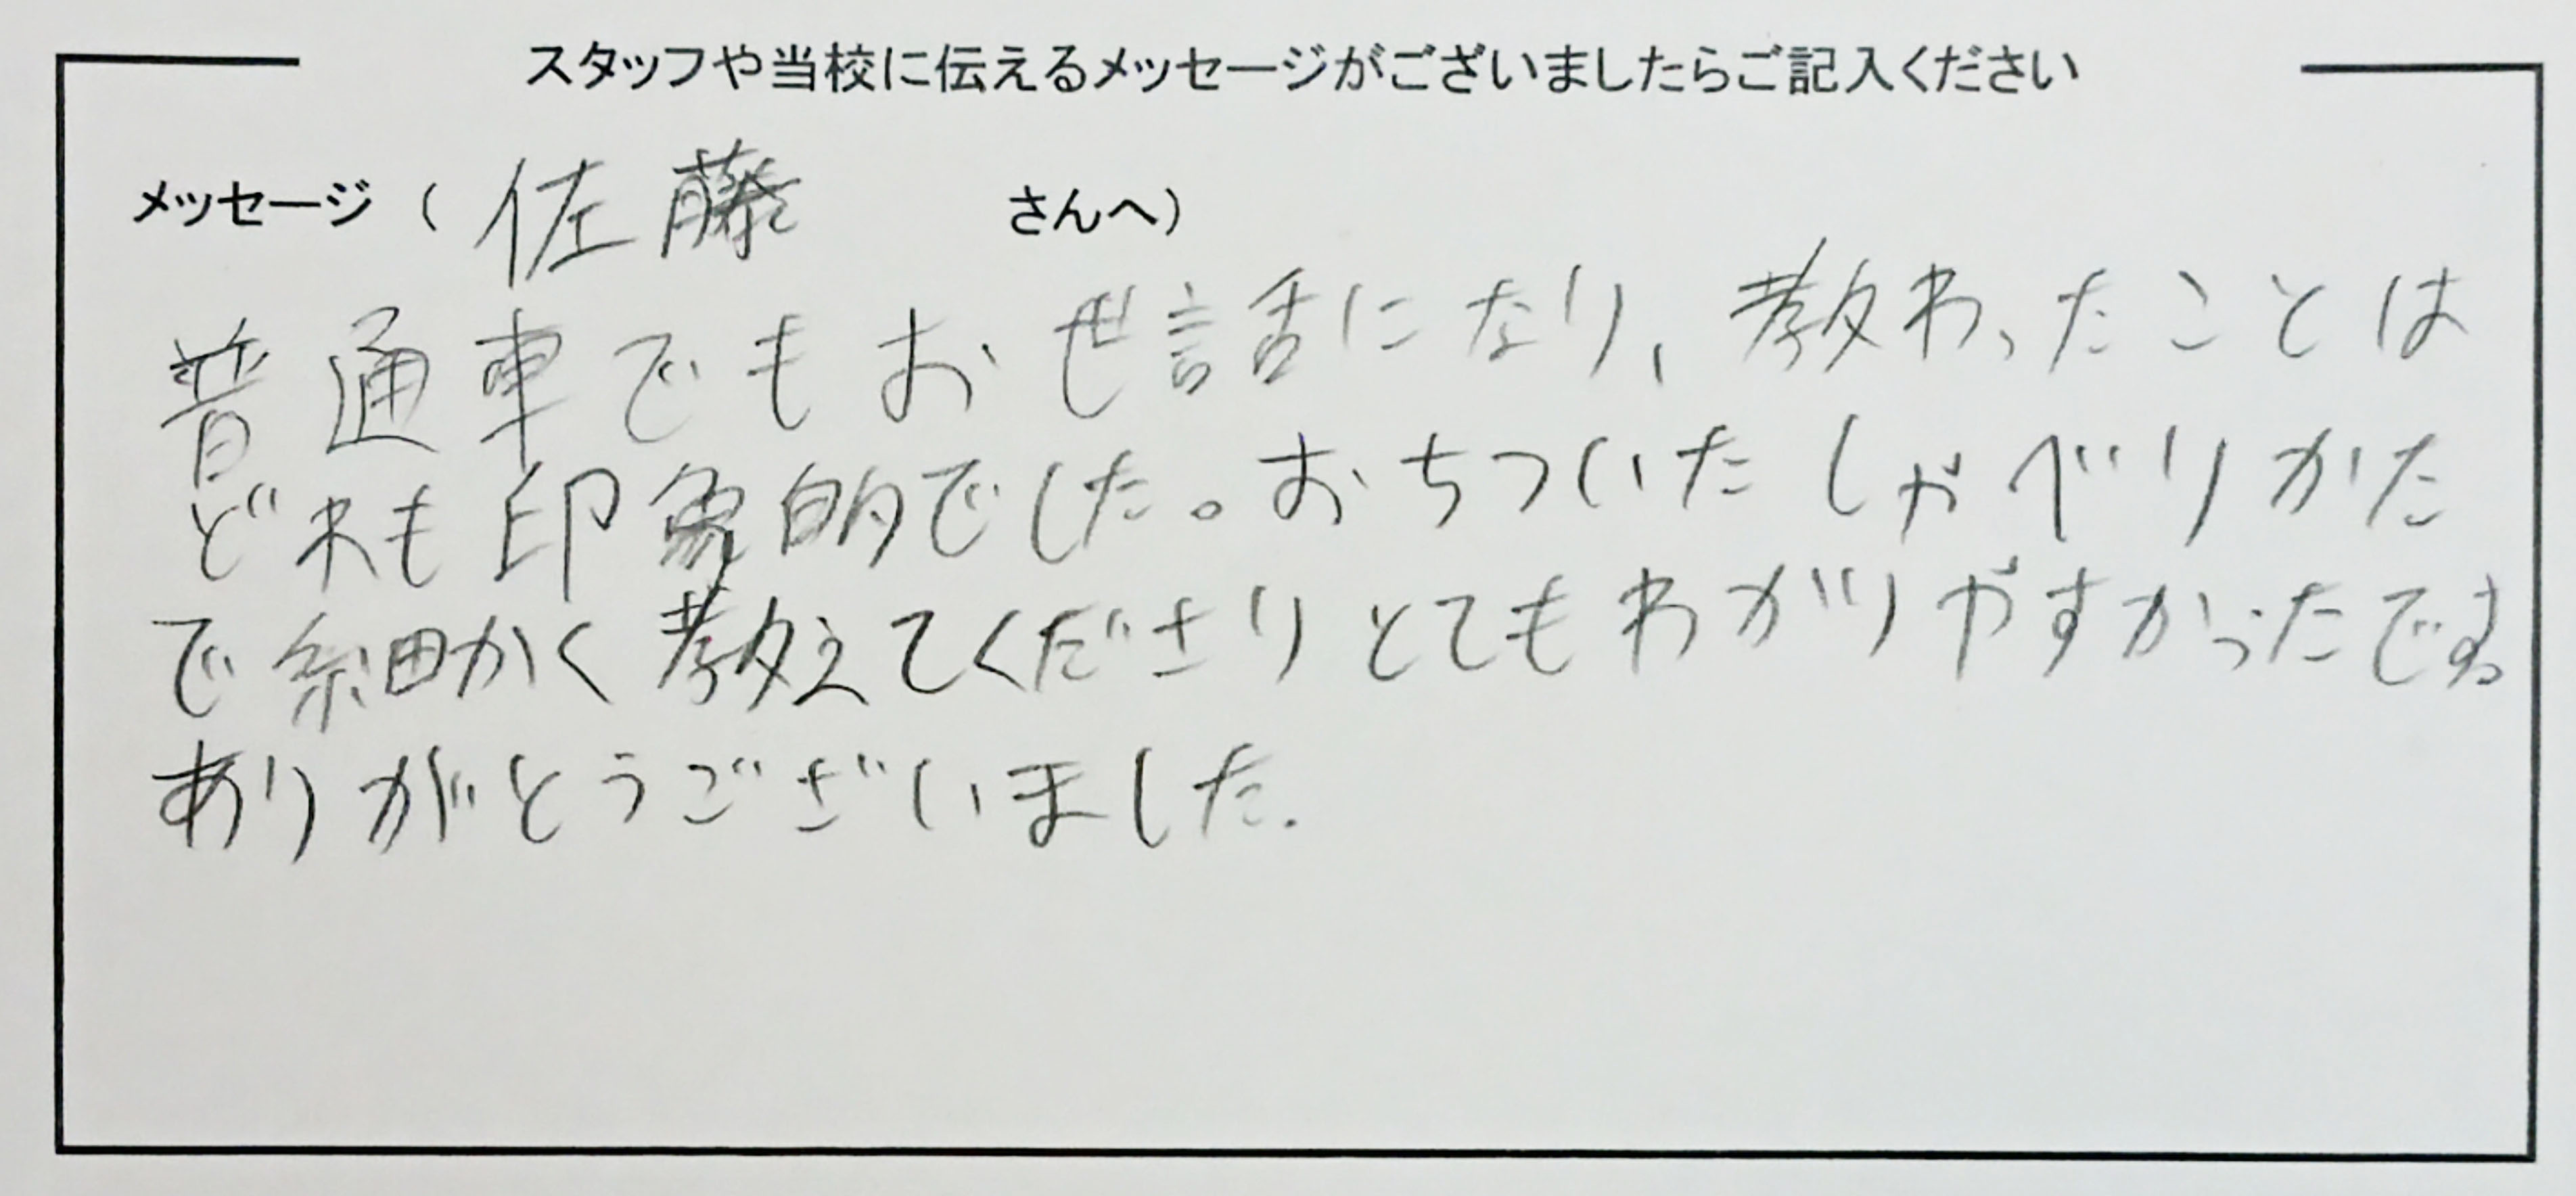 スタッフや当校に伝えるメッセージがございましたらご記入ください
メッセージ（ 佐藤 さんへ）
普通車でもお世話になり、教わったことは
どれも印象的でした。おちついたしゃべりかた
で細かく教えてくださりとてもわかりやすかったです。
ありがとうございました.